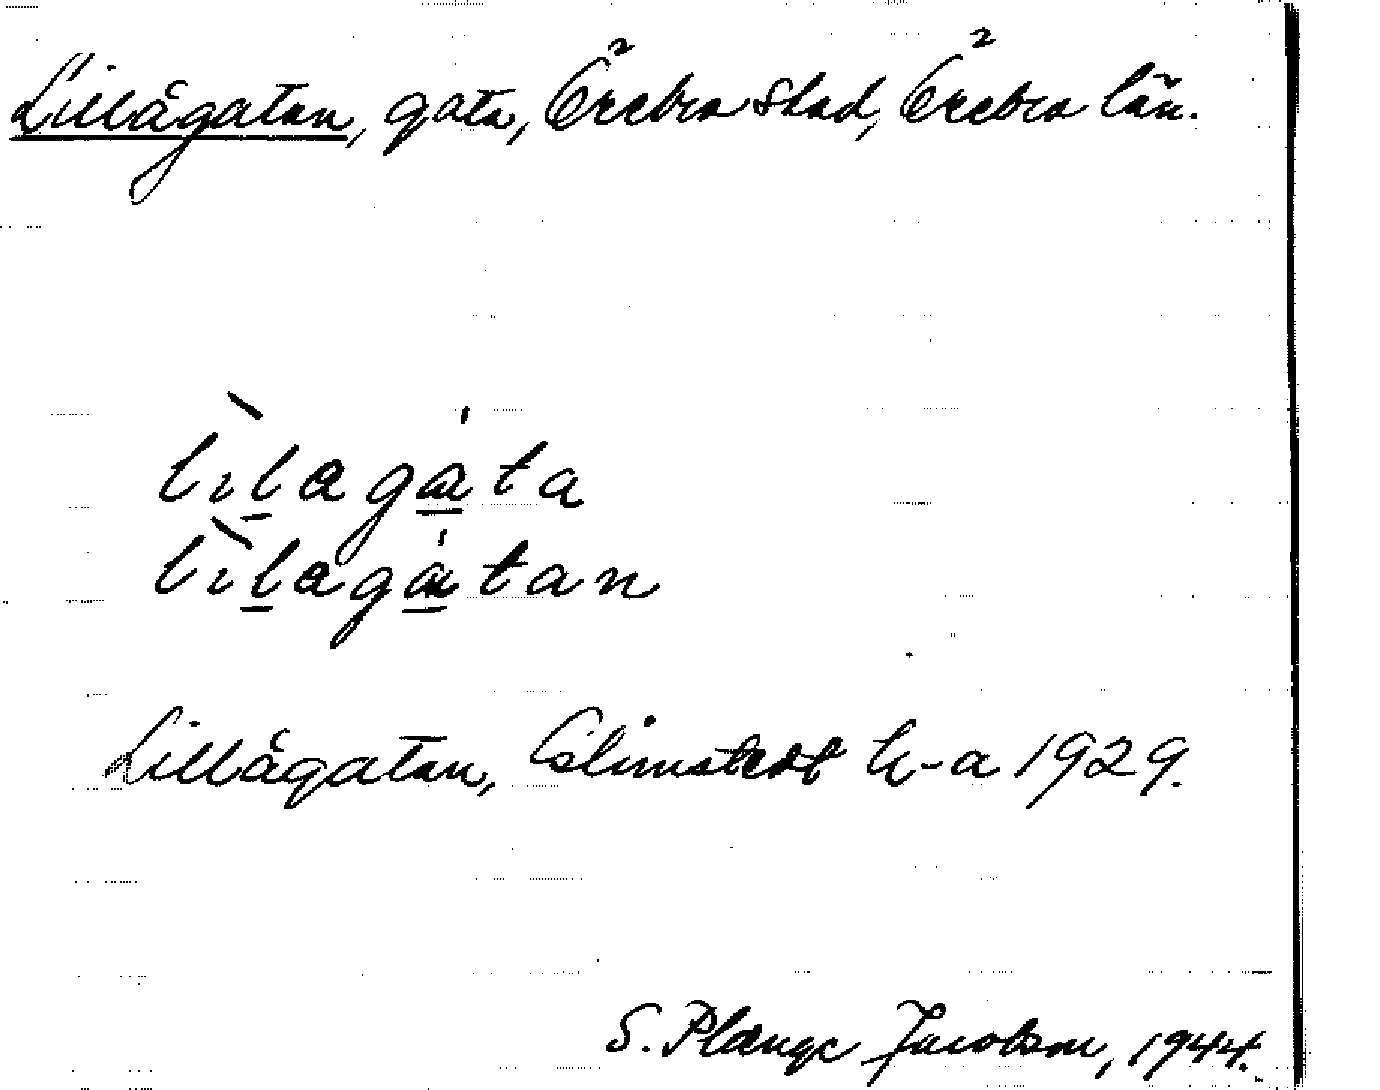 Lillågatan, gata, Örebro stad, Örebro län.
lìlagáta
lìlagátan
Lillågatan, Elimstedt h-a 1929.
S. Plange Jacobson, 1944.